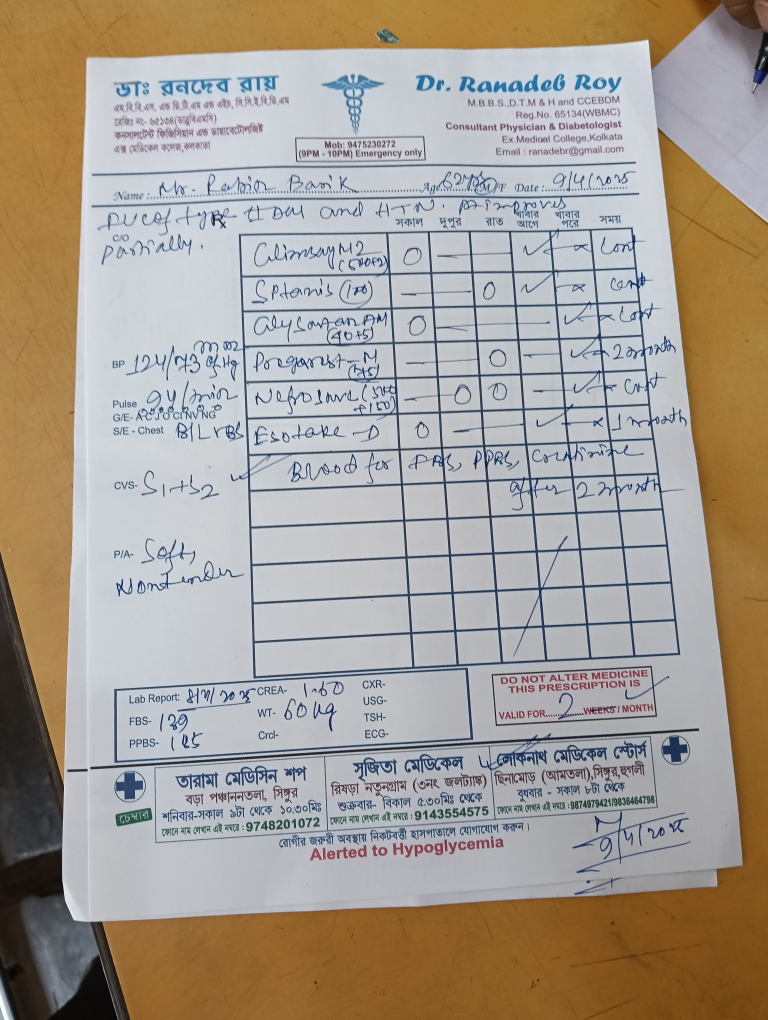 ডাঃ রনদেব রায়
এম.বি.বি.এস, এন্ড ডি.টি.এম এন্ড এইচ, সি.সি.ই.বি.ডি.এম
রেজিঃ নং- ৬৫১৩৪(ডাব্লুবিএমসি)
কনসালটেন্ট ফিজিসিয়ান এন্ড ডায়াবেটোলজিষ্ট
এক্স মেডিকেল কলেজ,কলকাতা
Mob: 9475230272
(9PM - 10PM) Emergency only
Dr. Ranadeb Roy
M.B.B.S.,D.T.M & H and CCEBDM
Reg.No. 65134(WBMC)
Consultant Physician & Diabetologist
Ex.Medical College,Kolkata
Email : ranadebr@gmail.com
Name : Mr. Barik Age 62 M/F Date : 9/4/2025
type II DM and HTN. improves
C/O partially.
Rx
সকাল দুপুর রাত খাবার আগে খাবার পরে সময়
M2 (500+2) O — ✓ — x Cont
(100) — O ✓ — x Cont
AM (40+5) O — — ✓ x Cont
BP 124/73 mm of Hg
- M (75) — O — ✓ x 2 month
Pulse 94/min
(500 +150) — O O — ✓ x Cont
G/E- A C J O CI NV NG
S/E - Chest B/L VBS
- D O — — ✓ — x 1 month
CVS- S1+S2
Blood for FBS, PPBS, Creatinine
after 2 month
P/A- Soft,
Nontender
Lab Report: 8/4/2025 CREA- 1.60 CXR-
FBS- 139 WT- 60 kg USG-
TSH-
PPBS- 185 Crcl- ECG-
DO NOT ALTER MEDICINE
THIS PRESCRIPTION IS
VALID FOR 2 WEEKS / MONTH
চেম্বার
তারামা মেডিসিন শপ
বড়া পঞ্চাননতলা, সিঙ্গুর
শনিবার-সকাল ৯টা থেকে ১০.৩০মিঃ
ফোনে নাম লেখান এই নম্বরে : 9748201072
সৃজিতা মেডিকেল
রিষড়া নতুনগ্রাম (৩নং জলট্যাঙ্ক)
শুক্রবার- বিকাল ৫.৩০মিঃ থেকে
ফোনে নাম লেখান এই নম্বরে : 9143554575
লোকনাথ মেডিকেল স্টোর্স
ছিনামোড় (আমতলা),সিঙ্গুর,হুগলী
বুধবার - সকাল ৮টা থেকে
ফোনে নাম লেখান এই নম্বরে :9874979421/9836464798
রোগীর জরুরী অবস্থায় নিকটবর্তী হাসপাতালে যোগাযোগ করুন।
Alerted to Hypoglycemia
9/4/2025